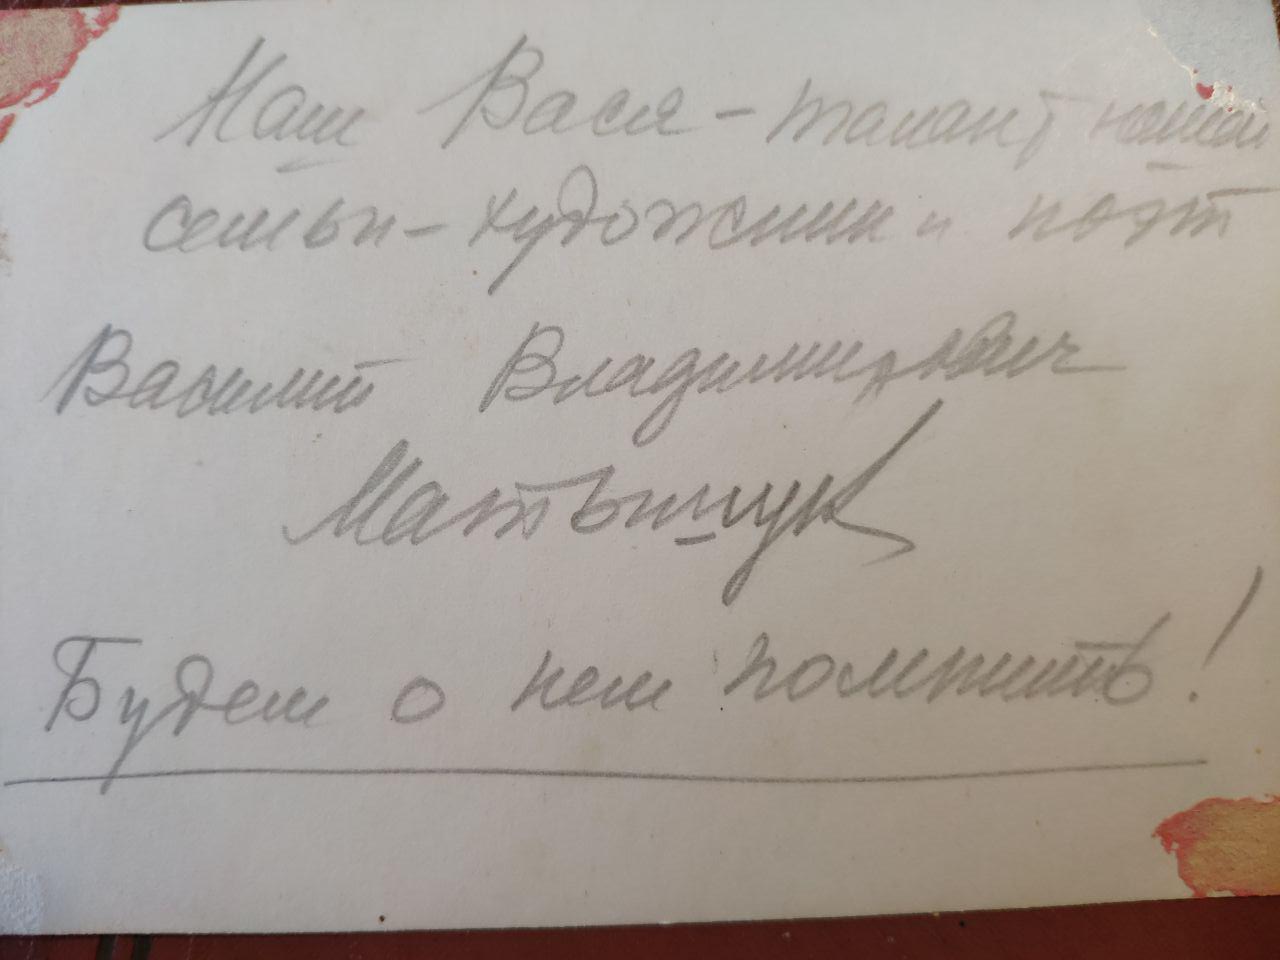 Наш Вася – талант нашей
семьи – художник и поэт
Василий Владимирович
Матышук
Будем о нем помнить!